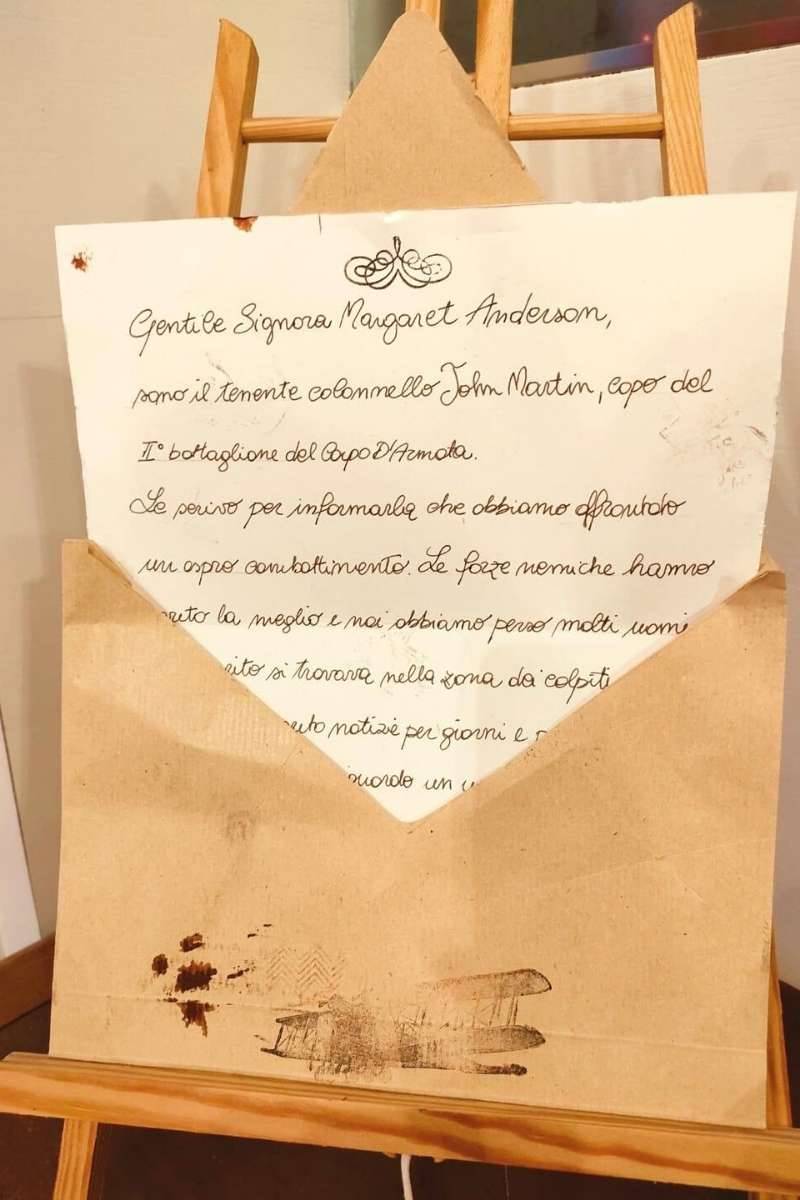 Gentile Signora Margaret Anderson,
sono il tenente colonnello John Martin, capo del
II° battaglione del Corpo D'Armata.
Le scrivo per informarla che abbiamo affrontato
un aspro combattimento. Le forze nemiche hanno
la meglio e noi abbiamo perso molti uomi
si trovava nella zona dei colpiti
notizie per giorni e
un